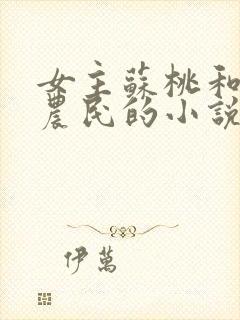 女主蘇桃和
農民的小說
伊萬